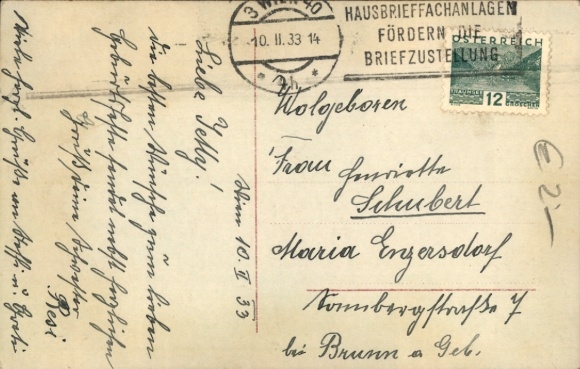 3 WIEN 40
10. II. 33 14
* 2b *
HAUSBRIEFFACHANLAGEN
FÖRDERN DIE
BRIEFZUSTELLUNG
ÖSTERREICH
TRAUNSEE
12 GROSCHEN
Wien 10. II. 33
Liebe Jetty!
die besten Wünsche zum lieben
Geburtsfeste sendet nebst herzlichen
Grüß deine Schwester
Resi
Viele herzl. Grüße an Steffi u. Greti
Wolgeboren
Frau Henriette
Schubert
Maria Enzersdorf
Sonnbergstraße 7
bei Brunn a Geb.
€ 2,-